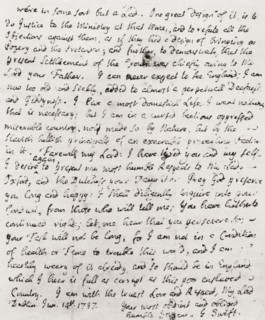 we're in some sort but a Lad. One great design of it, is to
do Justice to the Ministry at that time, and to refute all the
Objections against them, as if they had a design of bringing in
Popery and the Pretender; and further, to demonstrate, that the
present Settlement of the Crown was chiefly owing to My
Lord your Father. I can never expect to see England: I am
now too old and sickly, added to almost a perpetual Deafness
and Giddyness. I live a most domestick Life; I want nothing
that is necessary; but I am in a cursed factious oppressed
miserable country, not made so by Nature, but by the
slavish hellish principles of an execrable prevailing Faction
in it. Farewell my Lord. I have tired you and my self.
I Desire again to Present my most humble Respects to My Lady
Oxford, and the Dutchess your Daughter. Pray God preserve
you long and happy. I shall diligently inquire into your
Conduct, from those who will tell me. You have hitherto
continued right; Let me hear that you persevere so.
Your Task will not be long, for I am not in a Condition
of Health or Time to trouble this world, and I am
heartily weary of it already, and so should be in England,
which I hear is full as corrupt as this poor enslaved
Country. I am with the truest Love and Respect, My Lord,
Your most obedient and obliged
humble
J. Swift